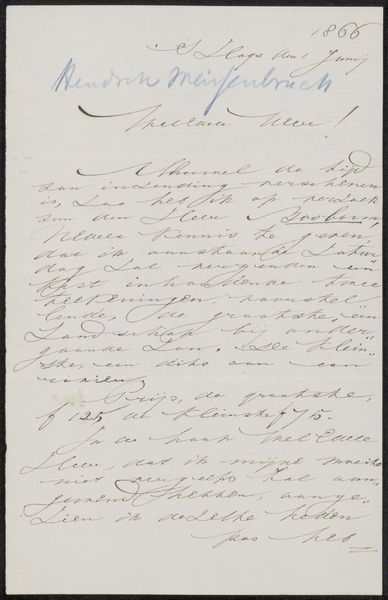 1866
's Hage den 1 Junij
Hendrik Weissenbruch
WelEdele Heer!
Alhoewel de tijd
van inzending verschenen
is, las heb ik op verzoek
van den Heer
UEdele kennis te geven,
dat ik aanstaande Satur
dag zal verzenden een
kist inhoudende twee
teekeningen, voorstel
lende, de grootste, een
Landschap bij onder
gaande Zon. De klein
ste, een dito aan een
rivier.
Prijs, de grootste,
f 125 de kleinste f 75.
In de hoop WelEdele
Heer, dat ik mijne moeite
niet vergeefs zal aan
gewend hebben, aange
zien ik dezelve heden
pas heb